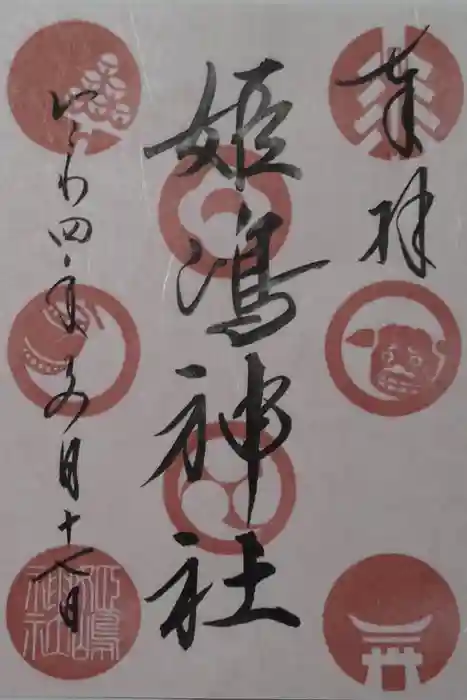 奉拝
姫嶋神社
れいわ四年五月十八日
姫嶋神社